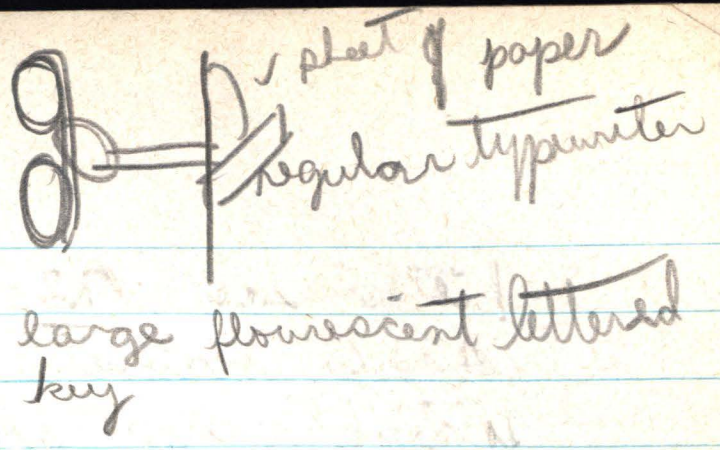 sheet of paper
regular typewriter
large flourescent lettered
key